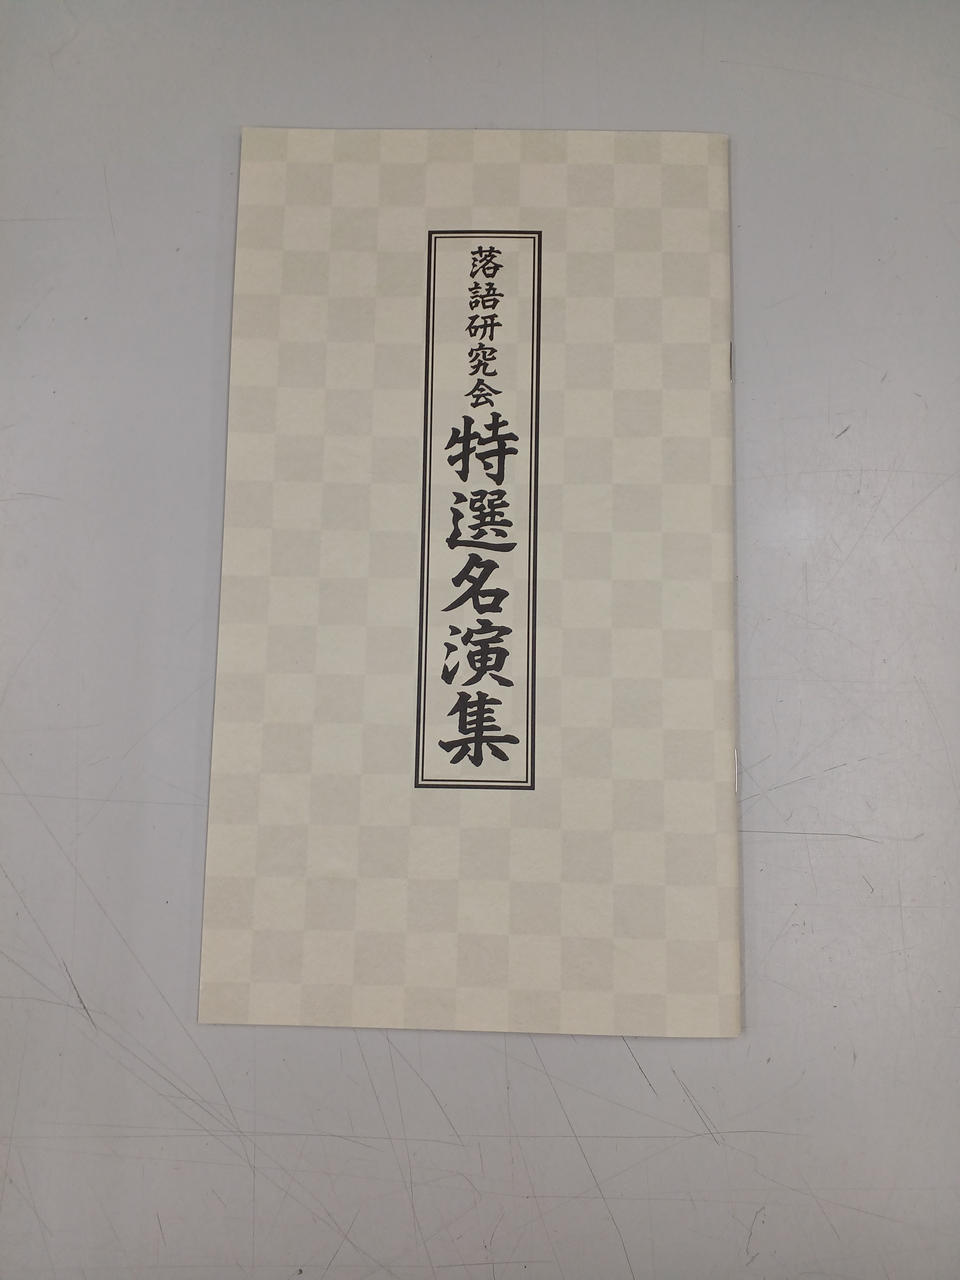 落語研究会特選名演集